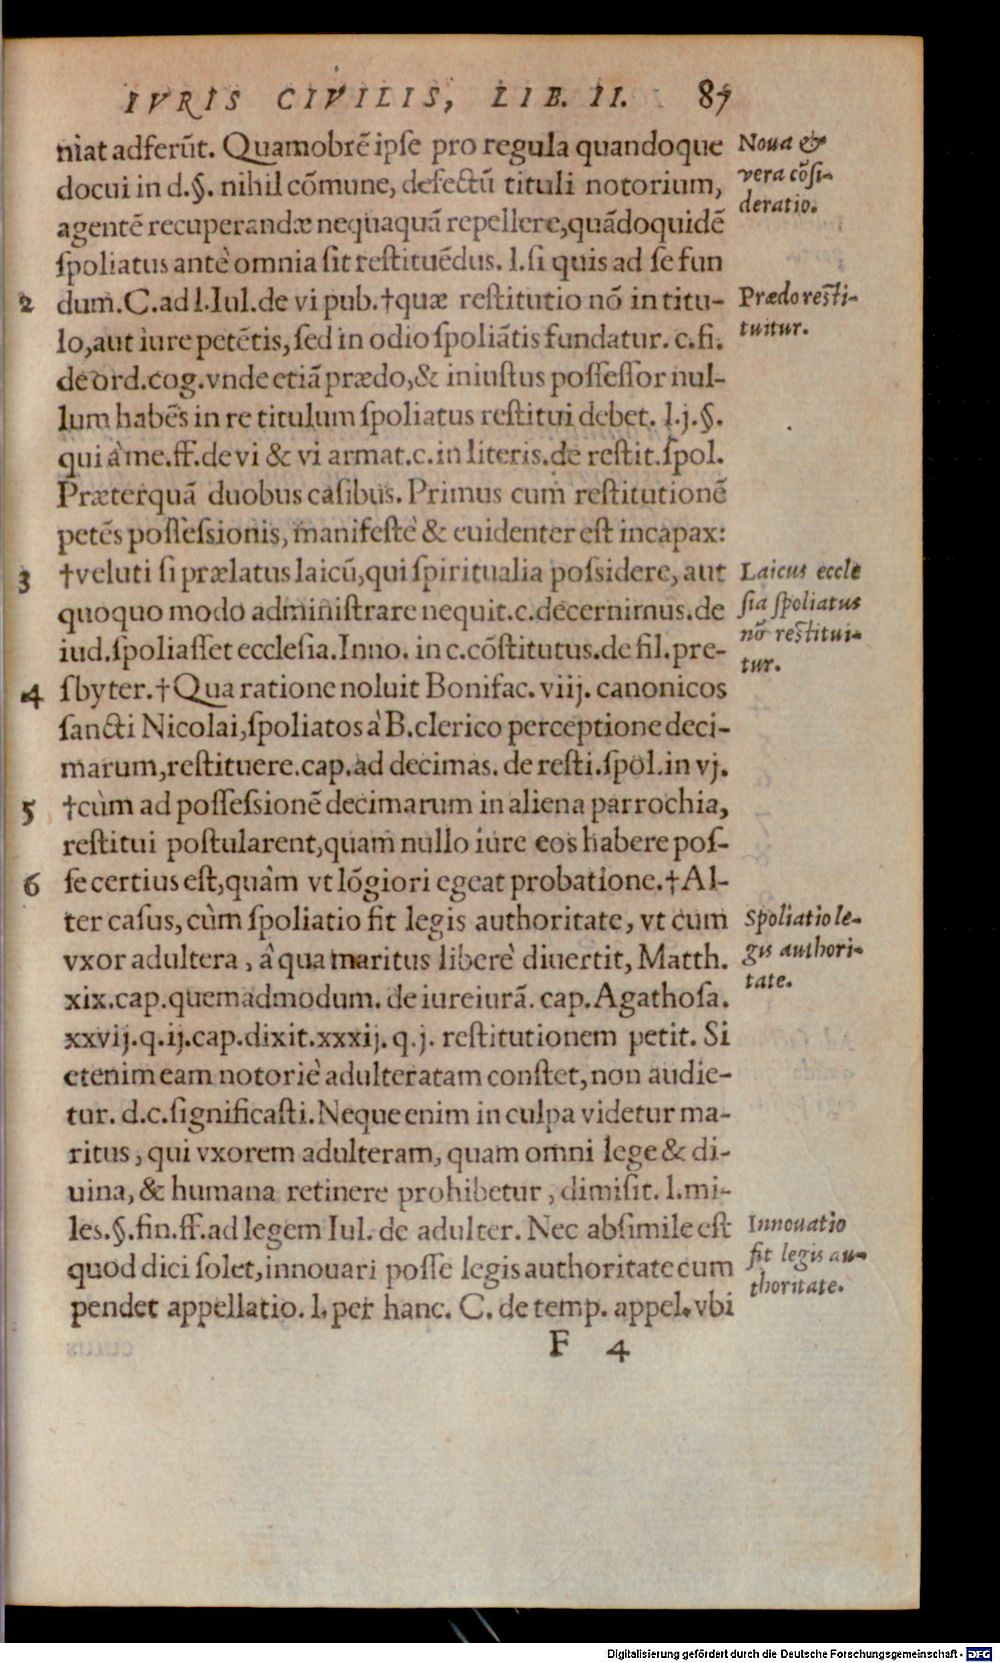 IVRIS CIVILIS, LIB. II. 87
niat adferūt. Quamobrē ipſe pro regula quandoque
docui in d.§. nihil cōmune, defectū tituli notorium,
agentē recuperandæ nequaquā repellere, quādoquidē
ſpoliatus antè omnia ſit reſtituēdus. l. ſi quis ad ſe fun
dum. C. ad l. Iul. de vi pub. †quæ reſtitutio nō in titu-
lo, aut iure petētis, ſed in odio ſpoliātis fundatur. c. fi.
de ord. cog. vnde etiā prædo, & iniuſtus poſſeſſor nul-
lum habēs in re titulum ſpoliatus reſtitui debet. l. j. §.
qui à me. ff. de vi & vi armat. c. in literis. de reſtit. ſpol.
Præterquā duobus caſibus. Primus cum reſtitutionē
petēs poſſeſsionis, manifeſtè & euidenter eſt incapax:
†veluti ſi prælatus laicū, qui ſpiritualia poſsidere, aut
quoquo modo adminiſtrare nequit. c. decernimus. de
iud. ſpoliaſſet eccleſia. Inno. in c. cōſtitutus. de fil. pre-
ſbyter. †Qua ratione noluit Bonifac. viij. canonicos
ſancti Nicolai, ſpoliatos à B. clerico perceptione deci-
marum, reſtituere. cap. ad decimas. de reſti. ſpol. in vj.
†cùm ad poſſeſsionē decimarum in aliena parrochia,
reſtitui poſtularent, quam nullo iure eos habere poſ-
ſe certius eſt, quàm vt lōgiori egeat probatione. †Al-
ter caſus, cùm ſpoliatio fit legis authoritate, vt cum
vxor adultera, à qua maritus liberè diuertit, Matth.
xix. cap. quemadmodum. de iureiurā. cap. Agathoſa.
xxvij. q. ij. cap. dixit. xxxij. q. j. reſtitutionem petit. Si
etenim eam notoriè adulteratam conſtet, non audie-
tur. d. c. ſignificaſti. Neque enim in culpa videtur ma-
ritus, qui vxorem adulteram, quam omni lege & di-
uina, & humana retinere prohibetur, dimiſit. l. mi-
les. §. fin. ff. ad legem Iul. de adulter. Nec abſimile eſt
quod dici ſolet, innouari poſſe legis authoritate cum
pendet appellatio. l. per hanc. C. de temp. appel. vbi
F 4
Noua &
vera cōſi-
deratio.
2
Prædo reſti-
tuitur.
3
Laicus eccle
ſia ſpoliatus
nō reſtitui-
tur.
4
5
6
Spoliatio le-
gis authori-
tate.
Innouatio
fit legis au-
thoritate.
Digitalisierung gefördert durch die Deutsche Forschungsgemeinschaft - DFG